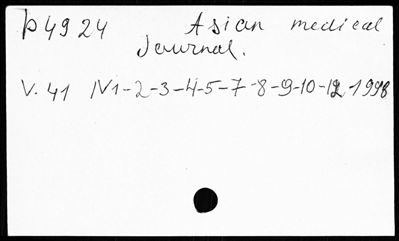 p4924 Asian medical
Journal.
V. 41 N1-2-3-4-5-7-8-9-10-12-1998